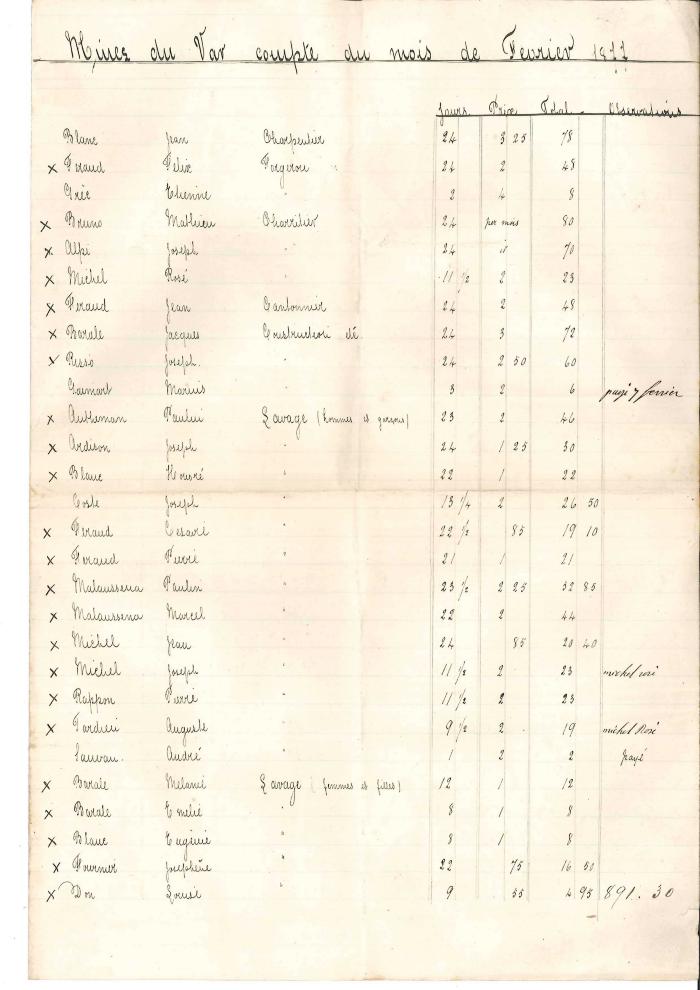 Mines du Var compte du mois de Fevrier 1877
Jours Prix Total Observations
Blanc Jean Charpentier 24 3 25 78
x Feraud Felix Forgeron 24 2 48
Grée Etienne 2 4 8
x Bruno Mathieu Charretier 24 per mois 80
x Alpi Joseph " 24 id 70
x Michel Rosé " 11 1/2 2 23
x Feraud Jean Cantonnier 24 2 48
x Barale Jacques Construction de 24 3 72
x Risso Joseph. " 24 2 50 60
Guimart Marius " 3 2 6 payé 7 fevrier
x Paulin Lavage (hommes et garçons) 23 2 46
x Ardison Joseph " 24 1 25 30
x Blanc Honoré " 22 1 22
Coste Joseph " 13 1/4 2 26 50
x Feraud Cesaré " 22 1/2 85 19 10
x Feraud Pierré " 21 1 21
x Malaussena Paulin " 23 1/2 2 25 52 85
x Malaussena Marcel " 22 2 44
x Michel Jean " 24 85 20 40
x Michel Joseph " 11 1/2 2 23 michel rosé
x Rappon Pierré " 11 1/2 2 23
x Tardieu Auguste " 9 1/2 2 19 michel Rosé
Sauvan. André " 1 2 2 payé
x Barale Melanié Lavage (femmes et filles) 12 1 12
x Barale Emelié " 8 1 8
x Blanc Eugénié " 8 1 8
x Fournier Josephine " 22 75 16 50
x Don Louisé " 9 55 4 95 891.30